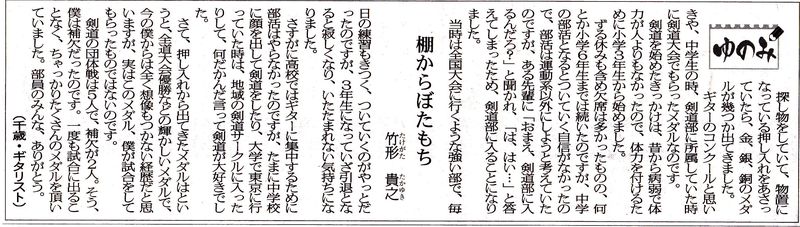 ゆのみ
探し物をしていて、物置に
なっている押し入れをあさっ
ていたら、金、銀、銅のメダ
ルが幾つか出てきました。
ギターのコンクールと思い
きや、中学生の時、剣道部に所属していた時
に剣道大会でもらったメダルなのです。
剣道を始めたきっかけは、昔から病弱で体
力が人よりもなかったので、体力を付けるた
めに小学3年生から始めました。
ずる休みも含め欠席は多かったものの、何
とか小学6年生までは続いたのですが、中学
の部活となるとついていく自信がなかったの
で、部活は運動系以外にしようと考えていた
のですが、ある先輩に「おまえ、剣道部に入
るんだろ?」と聞かれ、「は、はい…」と答
えてしまったため、剣道部に入ることになり
ました。
当時は全国大会に行くような強い部で、毎
棚からぼたもち
竹形 貴之
たけがた たかゆき
日の練習もきつく、ついていくのがやっとだ
ったのですが、3年生になっていざ引退とな
ると寂しくなり、いたたまれない気持ちにな
りました。
さすがに高校ではギターに集中するために
部活はやらなかったのですが、たまに中学校
に顔を出して剣道をしたり、大学で東京に行
っていた時は、地域の剣道サークルに入った
りして、何だかんだ言って剣道が大好きでし
た。
さて、押し入れから出てきたメダルはとい
うと、全道大会優勝などの輝かしいメダルで、
今の僕からは全く想像もつかない経歴だと思
いますが、実はこのメダル、僕が試合をして
もらったものではないのです。
剣道の団体戦は5人で、補欠が2人。そう、
僕は補欠だったのです。一度も試合に出るこ
となく、ちゃっかりたくさんのメダルを頂い
ていました。部員のみんな、ありがとう。
(千歳・ギタリスト)